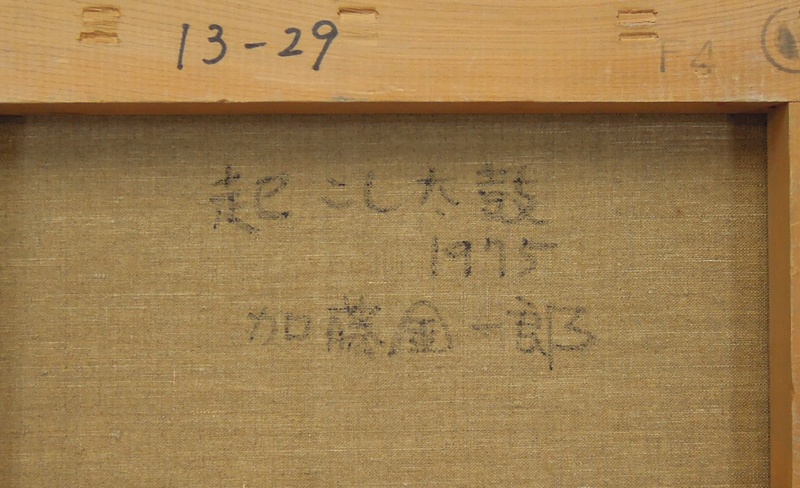 13-29
14
起こし太鼓
1975
加藤金一郎